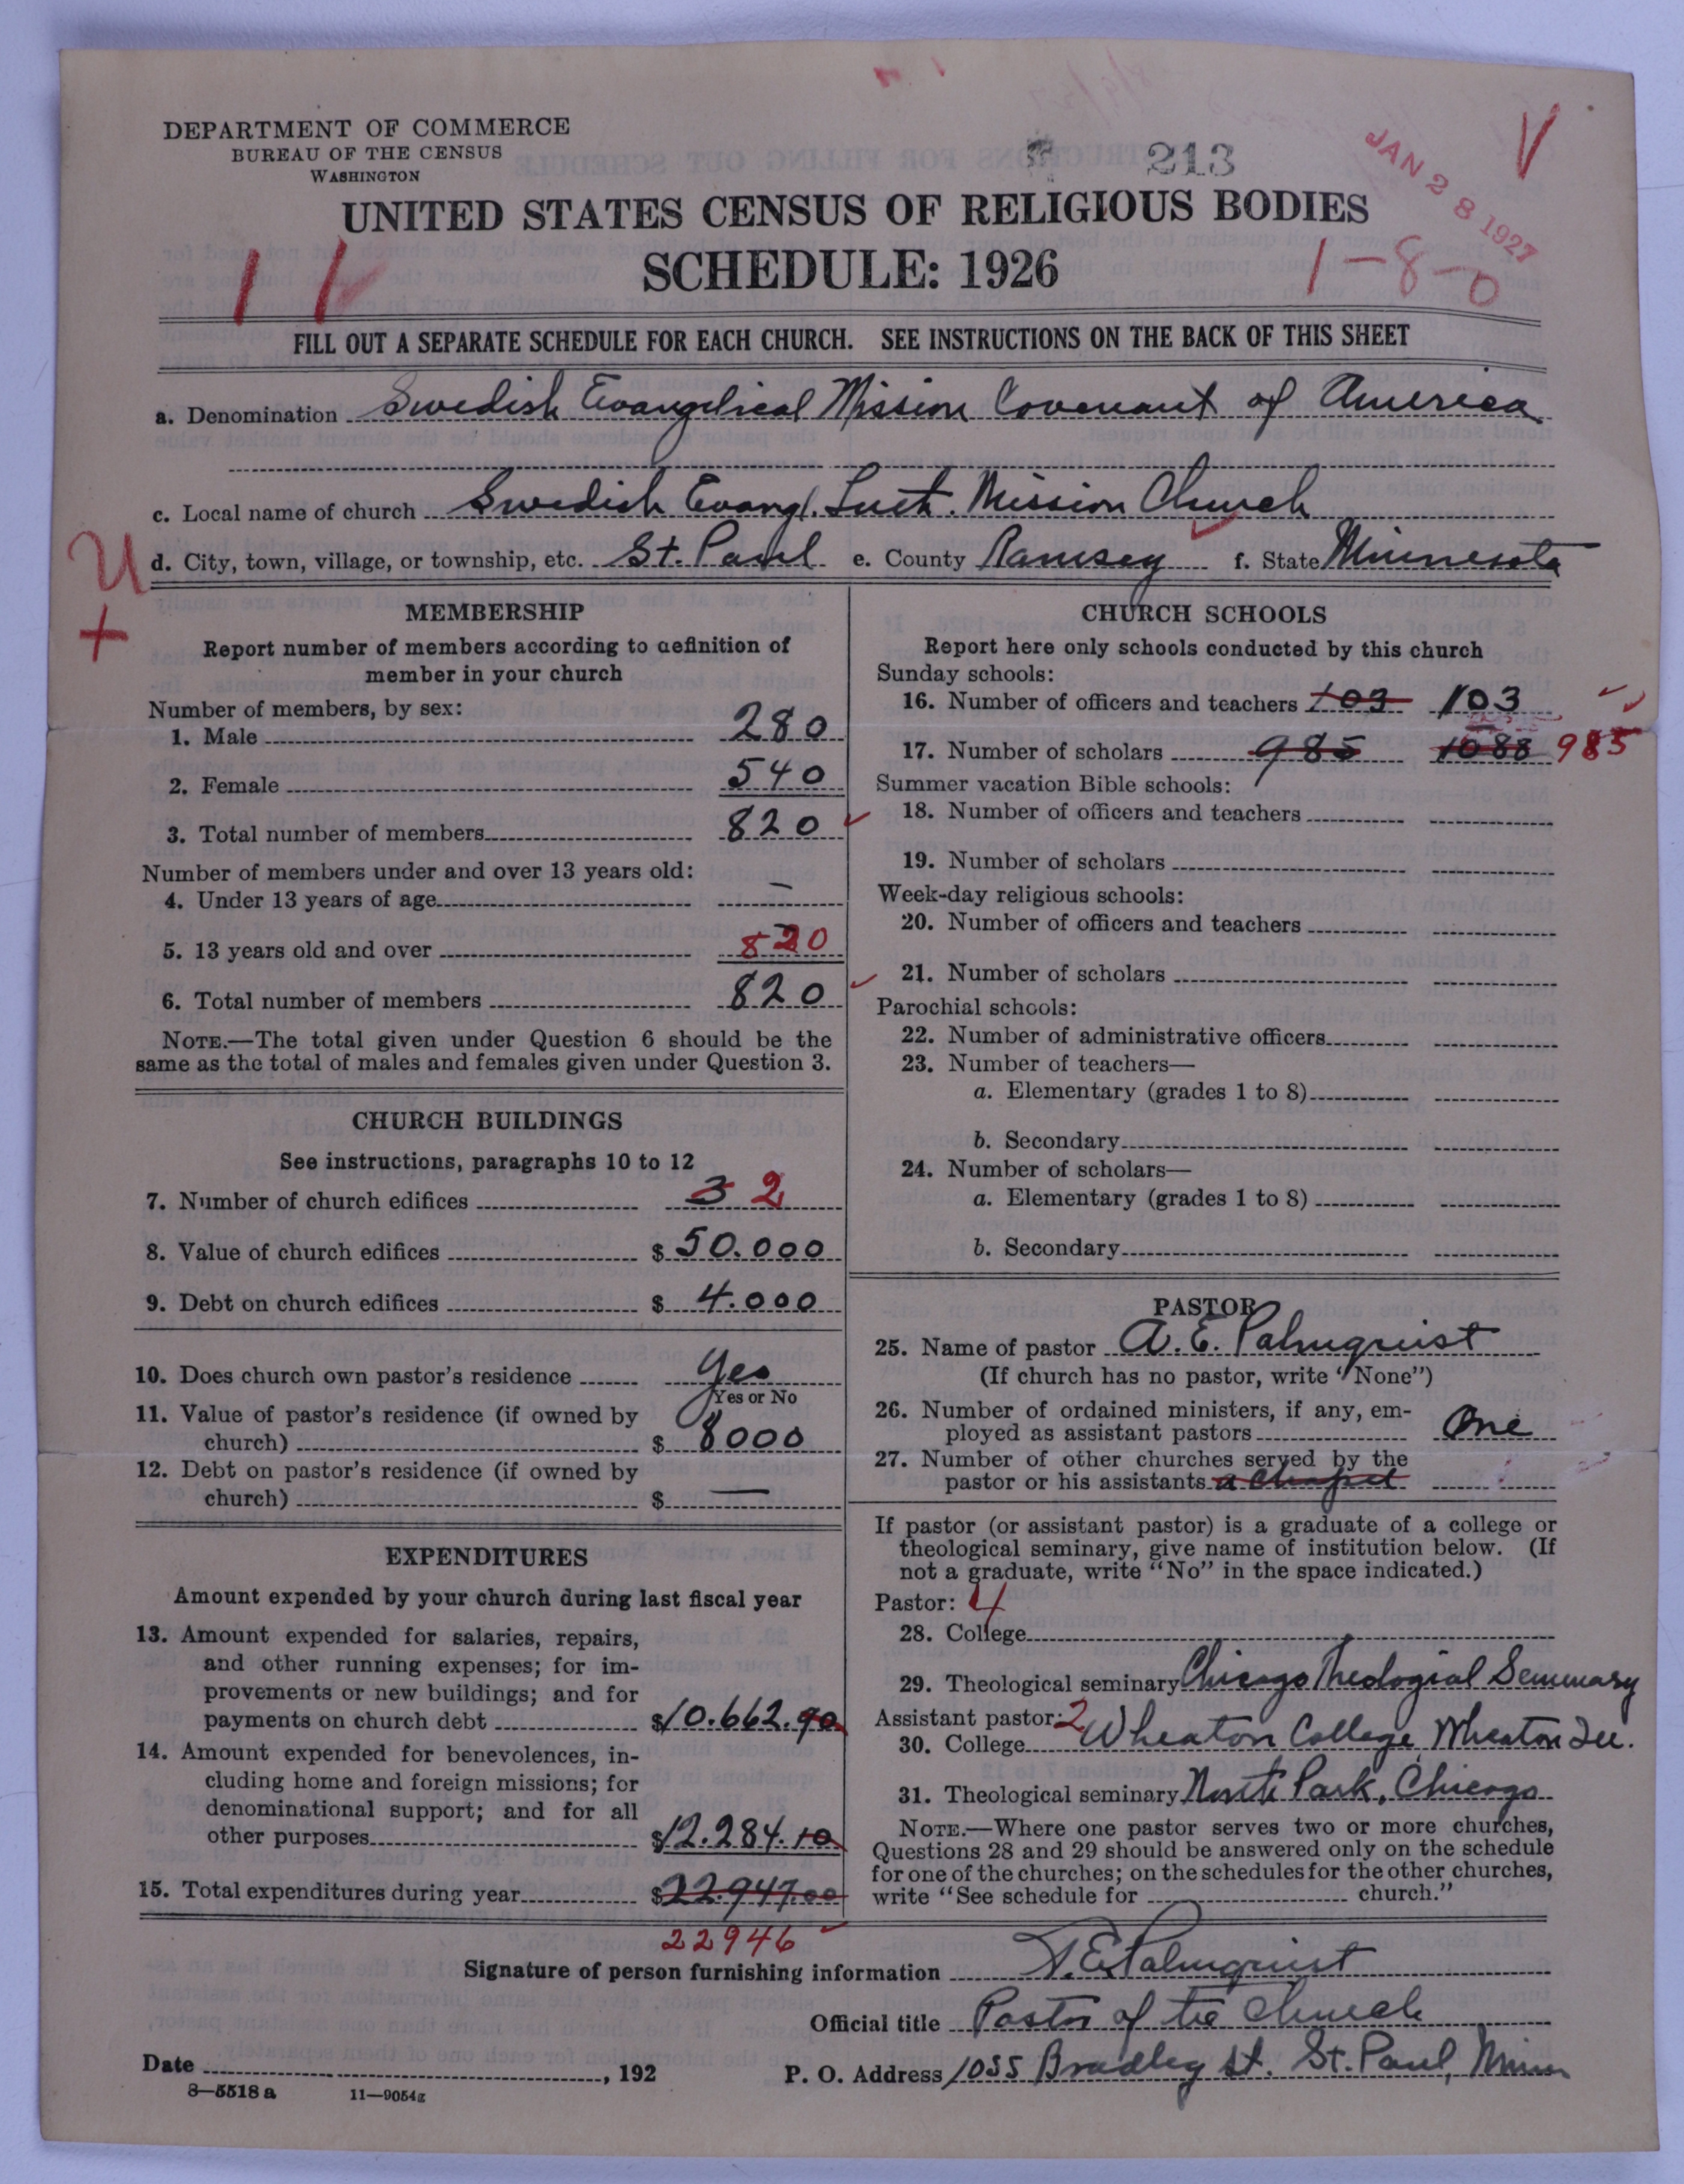 DEPARTMENT OF COMMERCE
BUREAU OF THE CENSUS
WASHINGTON
213
JAN 28 1927
UNITED STATES CENSUS OF RELIGIOUS BODIES
SCHEDULE: 1926
1-8-0
FILL OUT A SEPARATE SCHEDULE FOR EACH CHURCH. SEE INSTRUCTIONS ON THE BACK OF THIS SHEET
a. Denomination Swedish Evangelical Mission Covenant of America
c. Local name of church Swedish Evangl. Luth. Mission Church
U d. City, town, village, or township, etc. St. Paul e. County Ramsey f. State Minnesota
+
MEMBERSHIP
Report number of members according to definition of
member in your church
Number of members, by sex:
1. Male 280
2. Female 540
3. Total number of members 820
Number of members under and over 13 years old:
4. Under 13 years of age —
5. 13 years old and over 820
6. Total number of members 820
NOTE.—The total given under Question 6 should be the
same as the total of males and females given under Question 3.
CHURCH BUILDINGS
See instructions, paragraphs 10 to 12
7. Number of church edifices 3 2
8. Value of church edifices $ 50.000
9. Debt on church edifices $ 4.000
10. Does church own pastor's residence Yes
Yes or No
11. Value of pastor's residence (if owned by
church) $ 8000
12. Debt on pastor's residence (if owned by
church) $ —
EXPENDITURES
Amount expended by your church during last fiscal year
13. Amount expended for salaries, repairs,
and other running expenses; for im-
provements or new buildings; and for
payments on church debt $10.662.90
14. Amount expended for benevolences, in-
cluding home and foreign missions; for
denominational support; and for all
other purposes $12.284.10
15. Total expenditures during year $22.947.00
22946
CHURCH SCHOOLS
Report here only schools conducted by this church
Sunday schools:
16. Number of officers and teachers 103 103
17. Number of scholars 985 1088 985
Summer vacation Bible schools:
18. Number of officers and teachers
19. Number of scholars
Week-day religious schools:
20. Number of officers and teachers
21. Number of scholars
Parochial schools:
22. Number of administrative officers
23. Number of teachers—
a. Elementary (grades 1 to 8)
b. Secondary
24. Number of scholars—
a. Elementary (grades 1 to 8)
b. Secondary
PASTOR
25. Name of pastor A. E. Palmquist
(If church has no pastor, write "None")
26. Number of ordained ministers, if any, em-
ployed as assistant pastors One
27. Number of other churches served by the
pastor or his assistants a Chapel
If pastor (or assistant pastor) is a graduate of a college or
theological seminary, give name of institution below. (If
not a graduate, write "No" in the space indicated.)
Pastor: 4
28. College
29. Theological seminary Chicago Theological Seminary
Assistant pastor: 2
30. College Wheaton College, Wheaton Ill.
31. Theological seminary North Park, Chicago
NOTE.—Where one pastor serves two or more churches,
Questions 28 and 29 should be answered only on the schedule
for one of the churches; on the schedules for the other churches,
write "See schedule for church."
Signature of person furnishing information A. E. Palmquist
Official title Pastor of the Church
Date , 192 P. O. Address 1035 Bradley St. St. Paul, Minn
8—5518 a 11—9054g